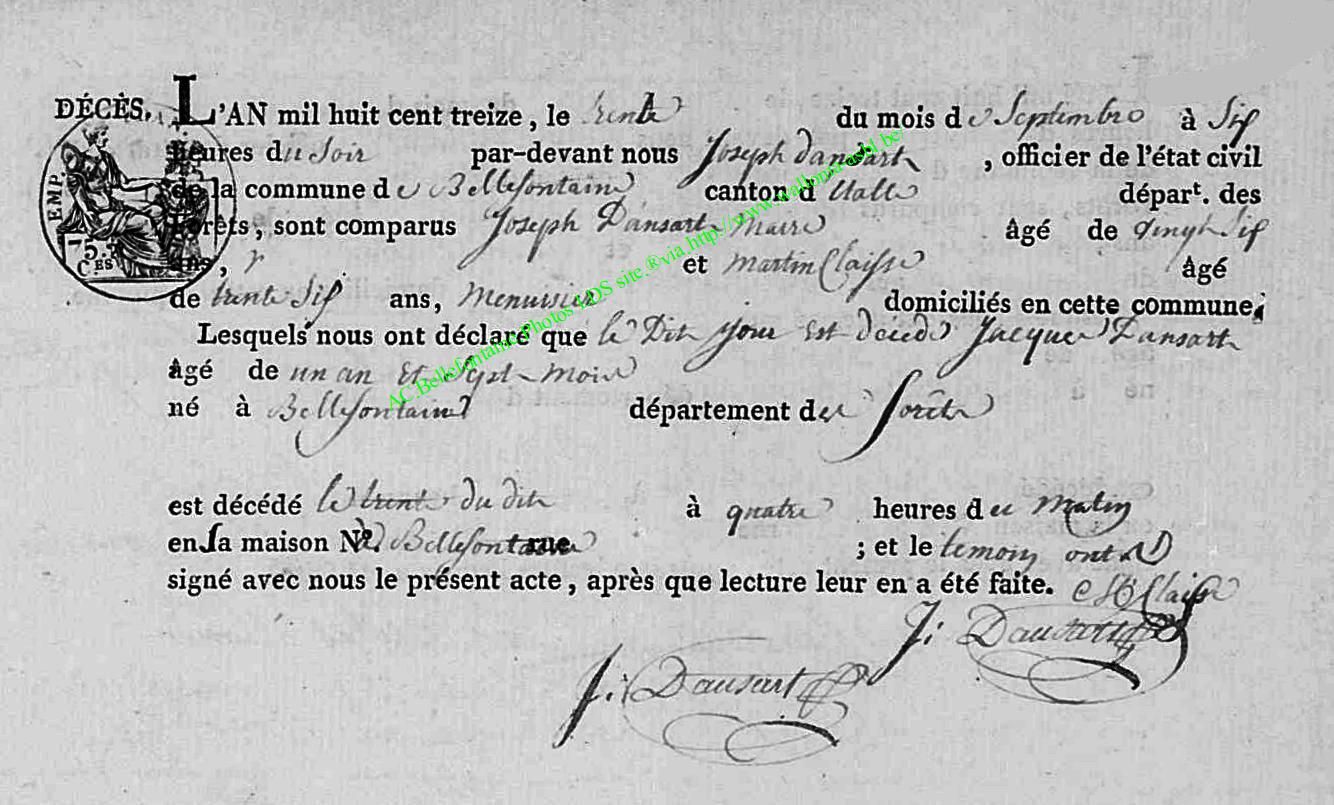 DÉCÈS. L'AN mil huit cent treize, le trente du mois de Septembre à Six
heures du Soir par-devant nous Joseph Dansart, officier de l'état civil
de la commune de Bellefontaine canton d'Etalle départ. des
Forêts, sont comparus Joseph Dansart Maire âgé de vingt Six
ans, et Martin Claisse âgé
de trente Six ans, Menuisier domiciliés en cette commune,
Lesquels nous ont déclaré que le Dit jour Est decedé Jacques Dansart
âgé de un an Et Sept Mois
né à Bellefontaine département des forêts
est décédé le trente du dit à quatre heures du Matin
en sa maison No. à Bellefontaine rue ; et le temoin ont
signé avec nous le présent acte, après que lecture leur en a été faite. Claisse
J: Dansart
J: Dansart
EMP.
75
CES
AC.Bellefontaine.Photos LDS site.®via.http://www.wallonia-asbl.be/